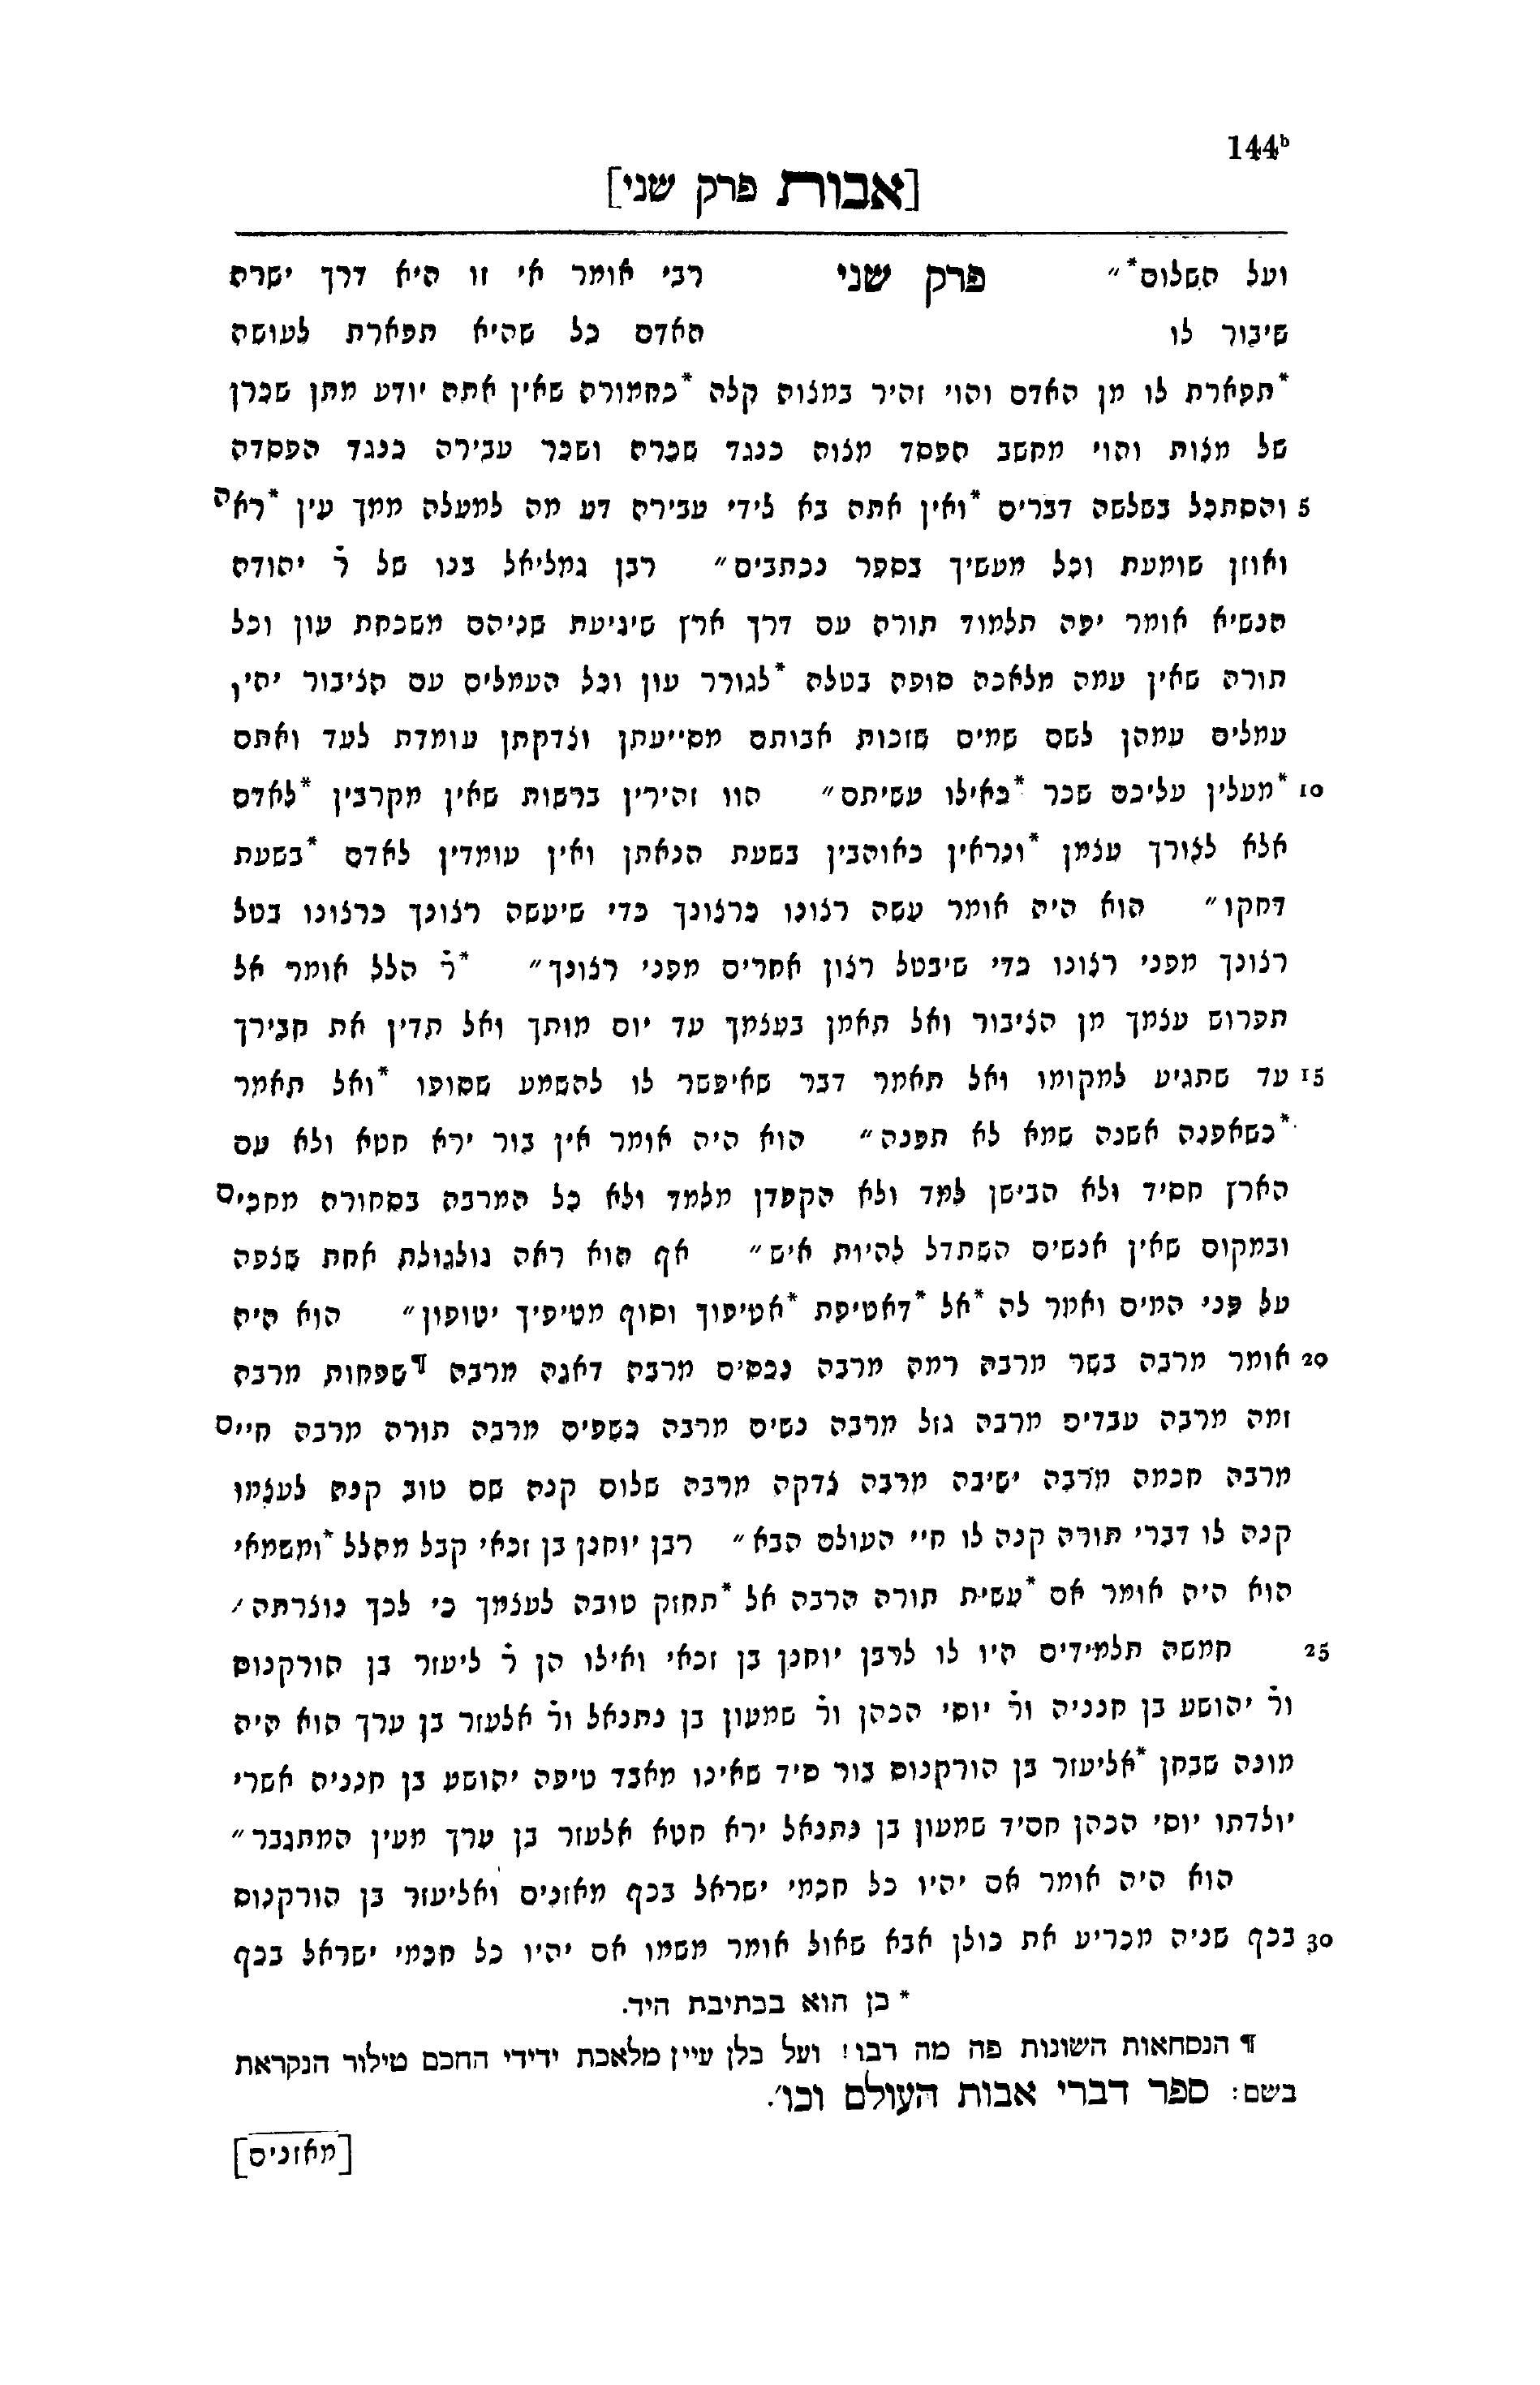 144ᵇ
[אבות פרק שני]
ועל השלום* ״ פרק שני רבי אומר אי זו היא דרך ישרה
שיבור לו האדם כל שהיא תפארת לעושה
*תפארת לו מן האדם והוי זהיר במצוה קלה *כחמורה שאין אתה יודע מתן שכרן
של מצות והוי מחשב הפסד מצוה כנגד שכרה ושכר עבירה כנגד הפסדה
5 והסתכל בשלשה דברים *ואין אתה בא לידי עבירה דע מה למעלה ממך עין *ראה
ואוזן שומעת וכל מעשיך בספר נכתבים״ רבן גמליאל בנו של ר̇ יהודה
הנשיא אומר יפה תלמוד תורה עם דרך ארץ שיגיעת שניהם משכחת עון וכל
תורה שאין עמה מלאכה סופה בטלה *לגורר עון וכל העמלים עם הציבור יהיו
עמלים עמהן לשם שמים שזכות אבותם מסייעתן וצדקתן עומדת לעד ואתם
10 *מעלין עליכם שכר *כאילו עשיתם״ הוו זהירין ברשות שאין מקרבין *לאדם
אלא לצורך עצמן *ונראין כאוהבין בשעת הנאתן ואין עומדין לאדם *בשעת
דחקו״ הוא היה אומר עשה רצונו כרצונך כדי שיעשה רצונך כרצונו בטל
רצונך מפני רצונו כדי שיבטל רצון אחרים מפני רצונך״ *ר̇ הלל אומר אל
תפרוש עצמך מן הציבור ואל תאמן בעצמך עד יום מותך ואל תדין את חבירך
15 עד שתגיע למקומו ואל תאמר דבר שאיפשר לו להשמע שסופו *ואל תאמר
*כשאפנה אשנה שמא לא תפנה״ הוא היה אומר אין בור ירא חטא ולא עם
הארץ חסיד ולא הבישן למד ולא הקפדן מלמד ולא כל המרבה בסחורה מחכים
ובמקום שאין אנשים השתדל להיות איש״ אף הוא ראה גולגולת אחת שצפה
על פני המים ואמר לה *אל *דאטיפת *אטיפוך וסוף מטיפיך יטופון״ הוא היה
20 אומר מרבה בשר מרבה רמה מרבה נכסים מרבה דאגה מרבה ¶שפחות מרבה
זמה מרבה עבדים מרבה גזל מרבה נשים מרבה כשפים מרבה תורה מרבה חיים
מרבה חכמה מרבה ישיבה מרבה צדקה מרבה שלום קנה שם טוב קנה לעצמו
קנה לו דברי תורה קנה לו חיי העולם הבא״ רבן יוחנן בן זכאי קבל מהלל *ומשמאי
הוא היה אומר אם *עשית תורה הרבה אל *תחזק טובה לעצמך כי לכך נוצרתה׳
25 חמשה תלמידים היו לו לרבן יוחנן בן זכאי ואילו הן ר̇ ליעזר בן הורקנוס
ור̇ יהושע בן חנניה ור̇ יוסי הכהן ור̇ שמעון בן נתנאל ור̇ אלעזר בן ערך הוא היה
מונה שבחן *אליעזר בן הורקנוס בור סיד שאינו מאבד טיפה יהושע בן חנניה אשרי
יולדתו יוסי הכהן חסיד שמעון בן נתנאל ירא חטא אלעזר בן ערך מעין המתגבר״
הוא היה אומר אם יהיו כל חכמי ישראל בכף מאזנים ואליעזר בן הורקנוס
30 בכף שניה מכריע את כולן אבא שאול אומר משמו אם יהיו כל חכמי ישראל בכף
* כן הוא בכתיבת היד.
¶ הנסחאות השונות פה מה רבו! ועל כלן עיין מלאכת ידידי החכם טילור הנקראת
בשם: ספר דברי אבות העולם וכו׳.
[מאזנים]